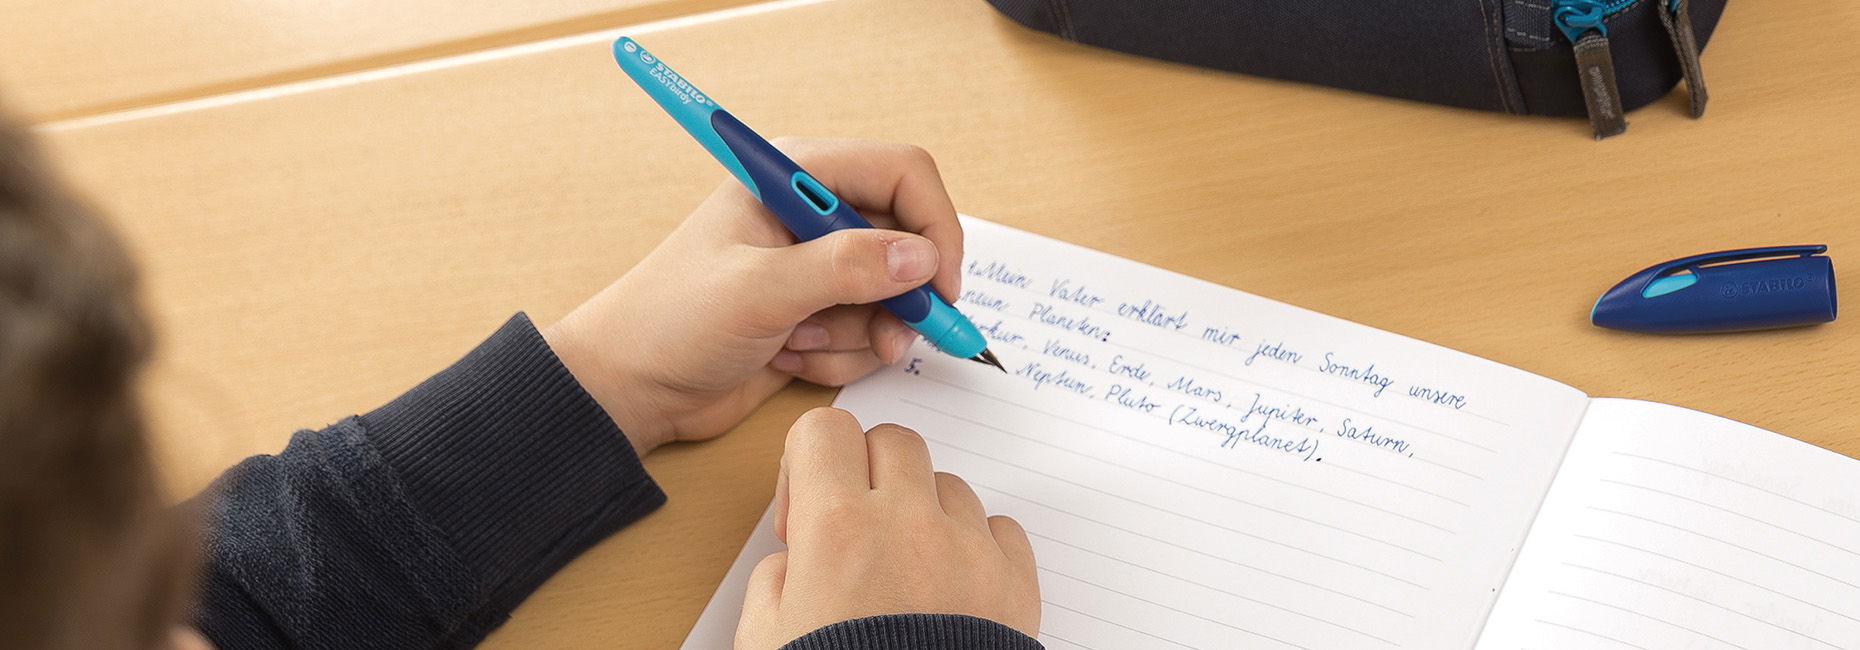 STABILO
EASYbirdy
Mein Vater erklärt mir jeden Sonntag unsere
neun Planeten:
Merkur, Venus, Erde, Mars, Jupiter, Saturn,
Neptun, Pluto (Zwergplanet).
5.
STABILO